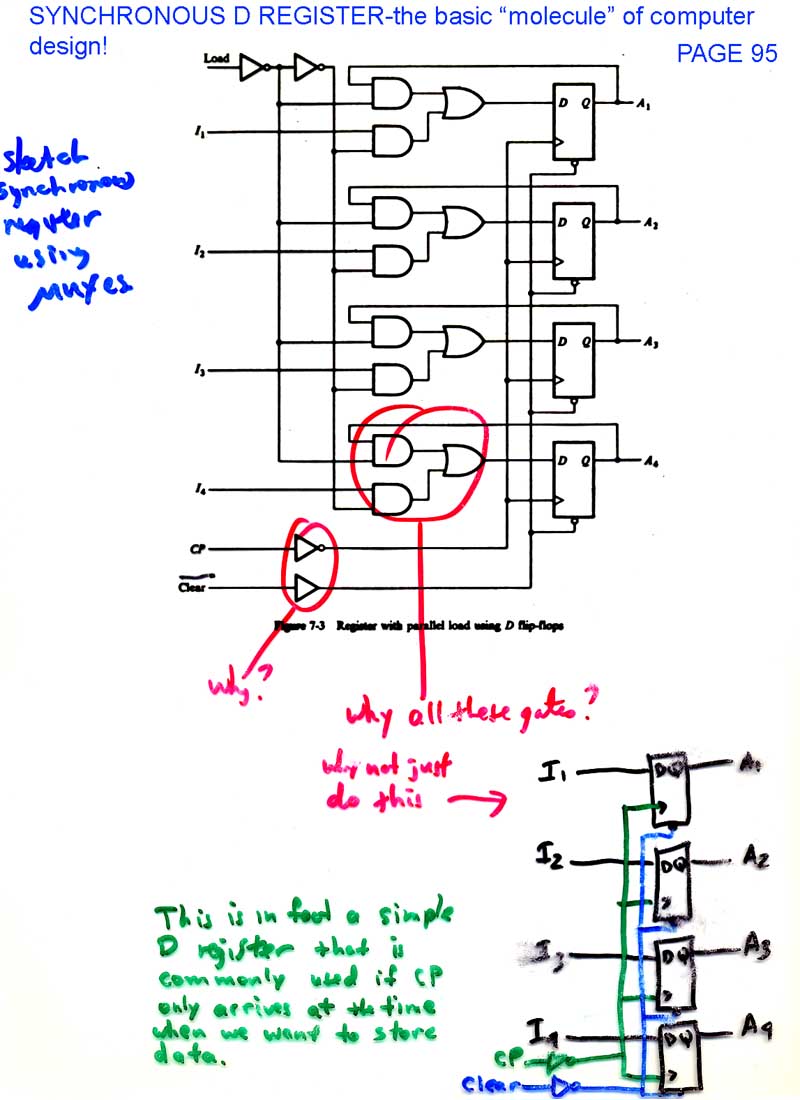 SYNCHRONOUS D REGISTER-the basic “molecule” of computer
design!
PAGE 95
Load
D Q
A1
I1
sketch
synchronous
register
using
muxes
D Q
A2
I2
D Q
A3
I3
D Q
A4
I4
CP
Clear
Figure 7-3 Register with parallel load using D flip-flops
why?
why all these gates?
why not just
do this →
I1
DQ
A1
I2
DQ
A2
I3
DQ
A3
I4
DQ
A4
CP
Clear
This is in fact a simple
D register that is
commonly used if CP
only arrives at the time
when we want to store
data.